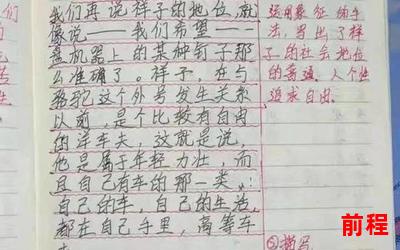 我们再说祥子的地位,就
像说——我们希望——一
盘机器上的某种钉子那
么准确了。祥子,在与
骆驼这个外号发生关系
以前,是个比较有自由
的洋车夫,这就是说,
他是属于年轻力壮,而
且自己有车的那一类:
自己的车,自己的生活,
都在自己手里,高等车
运用象征的手
法,写出了祥
子的社会地位
的普通,人个性
追求自由。
们
前程